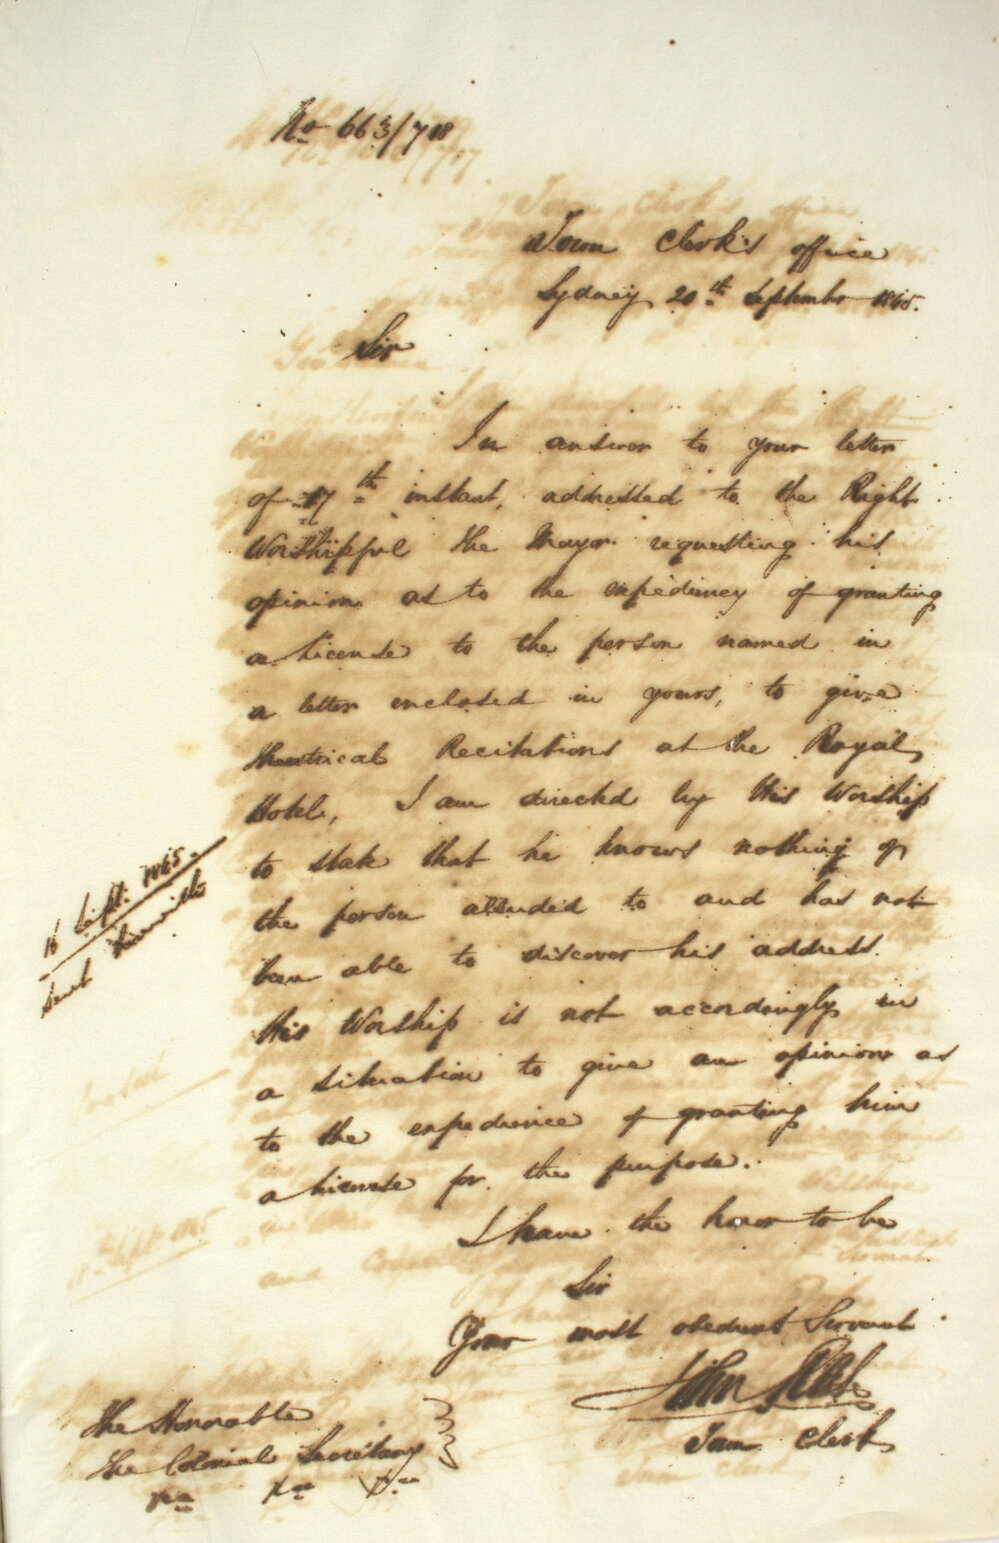 No 663/718
Town Clerk's office
Sydney 20th September 1865.
Sir
In answer to your letter
of 17th instant, addressed to the Right
Worshipful the Mayor requesting his
opinion as to the expediency of granting
a license to the person named in
a letter enclosed in yours, to give
theatrical Recitations at the Royal
Hotel, I am directed by His Worship
to state that he knows nothing of
the person alluded to and has not
been able to discover his address.
His Worship is not accordingly in
a situation to give an opinion as
to the expedience of granting him
a license for the purpose.
I have the honor to be
Sir
Your most obedient Servant
John
Town Clerk
The Honorable
The Colonial Secretary
16 Sept. 1865.
sent herewith